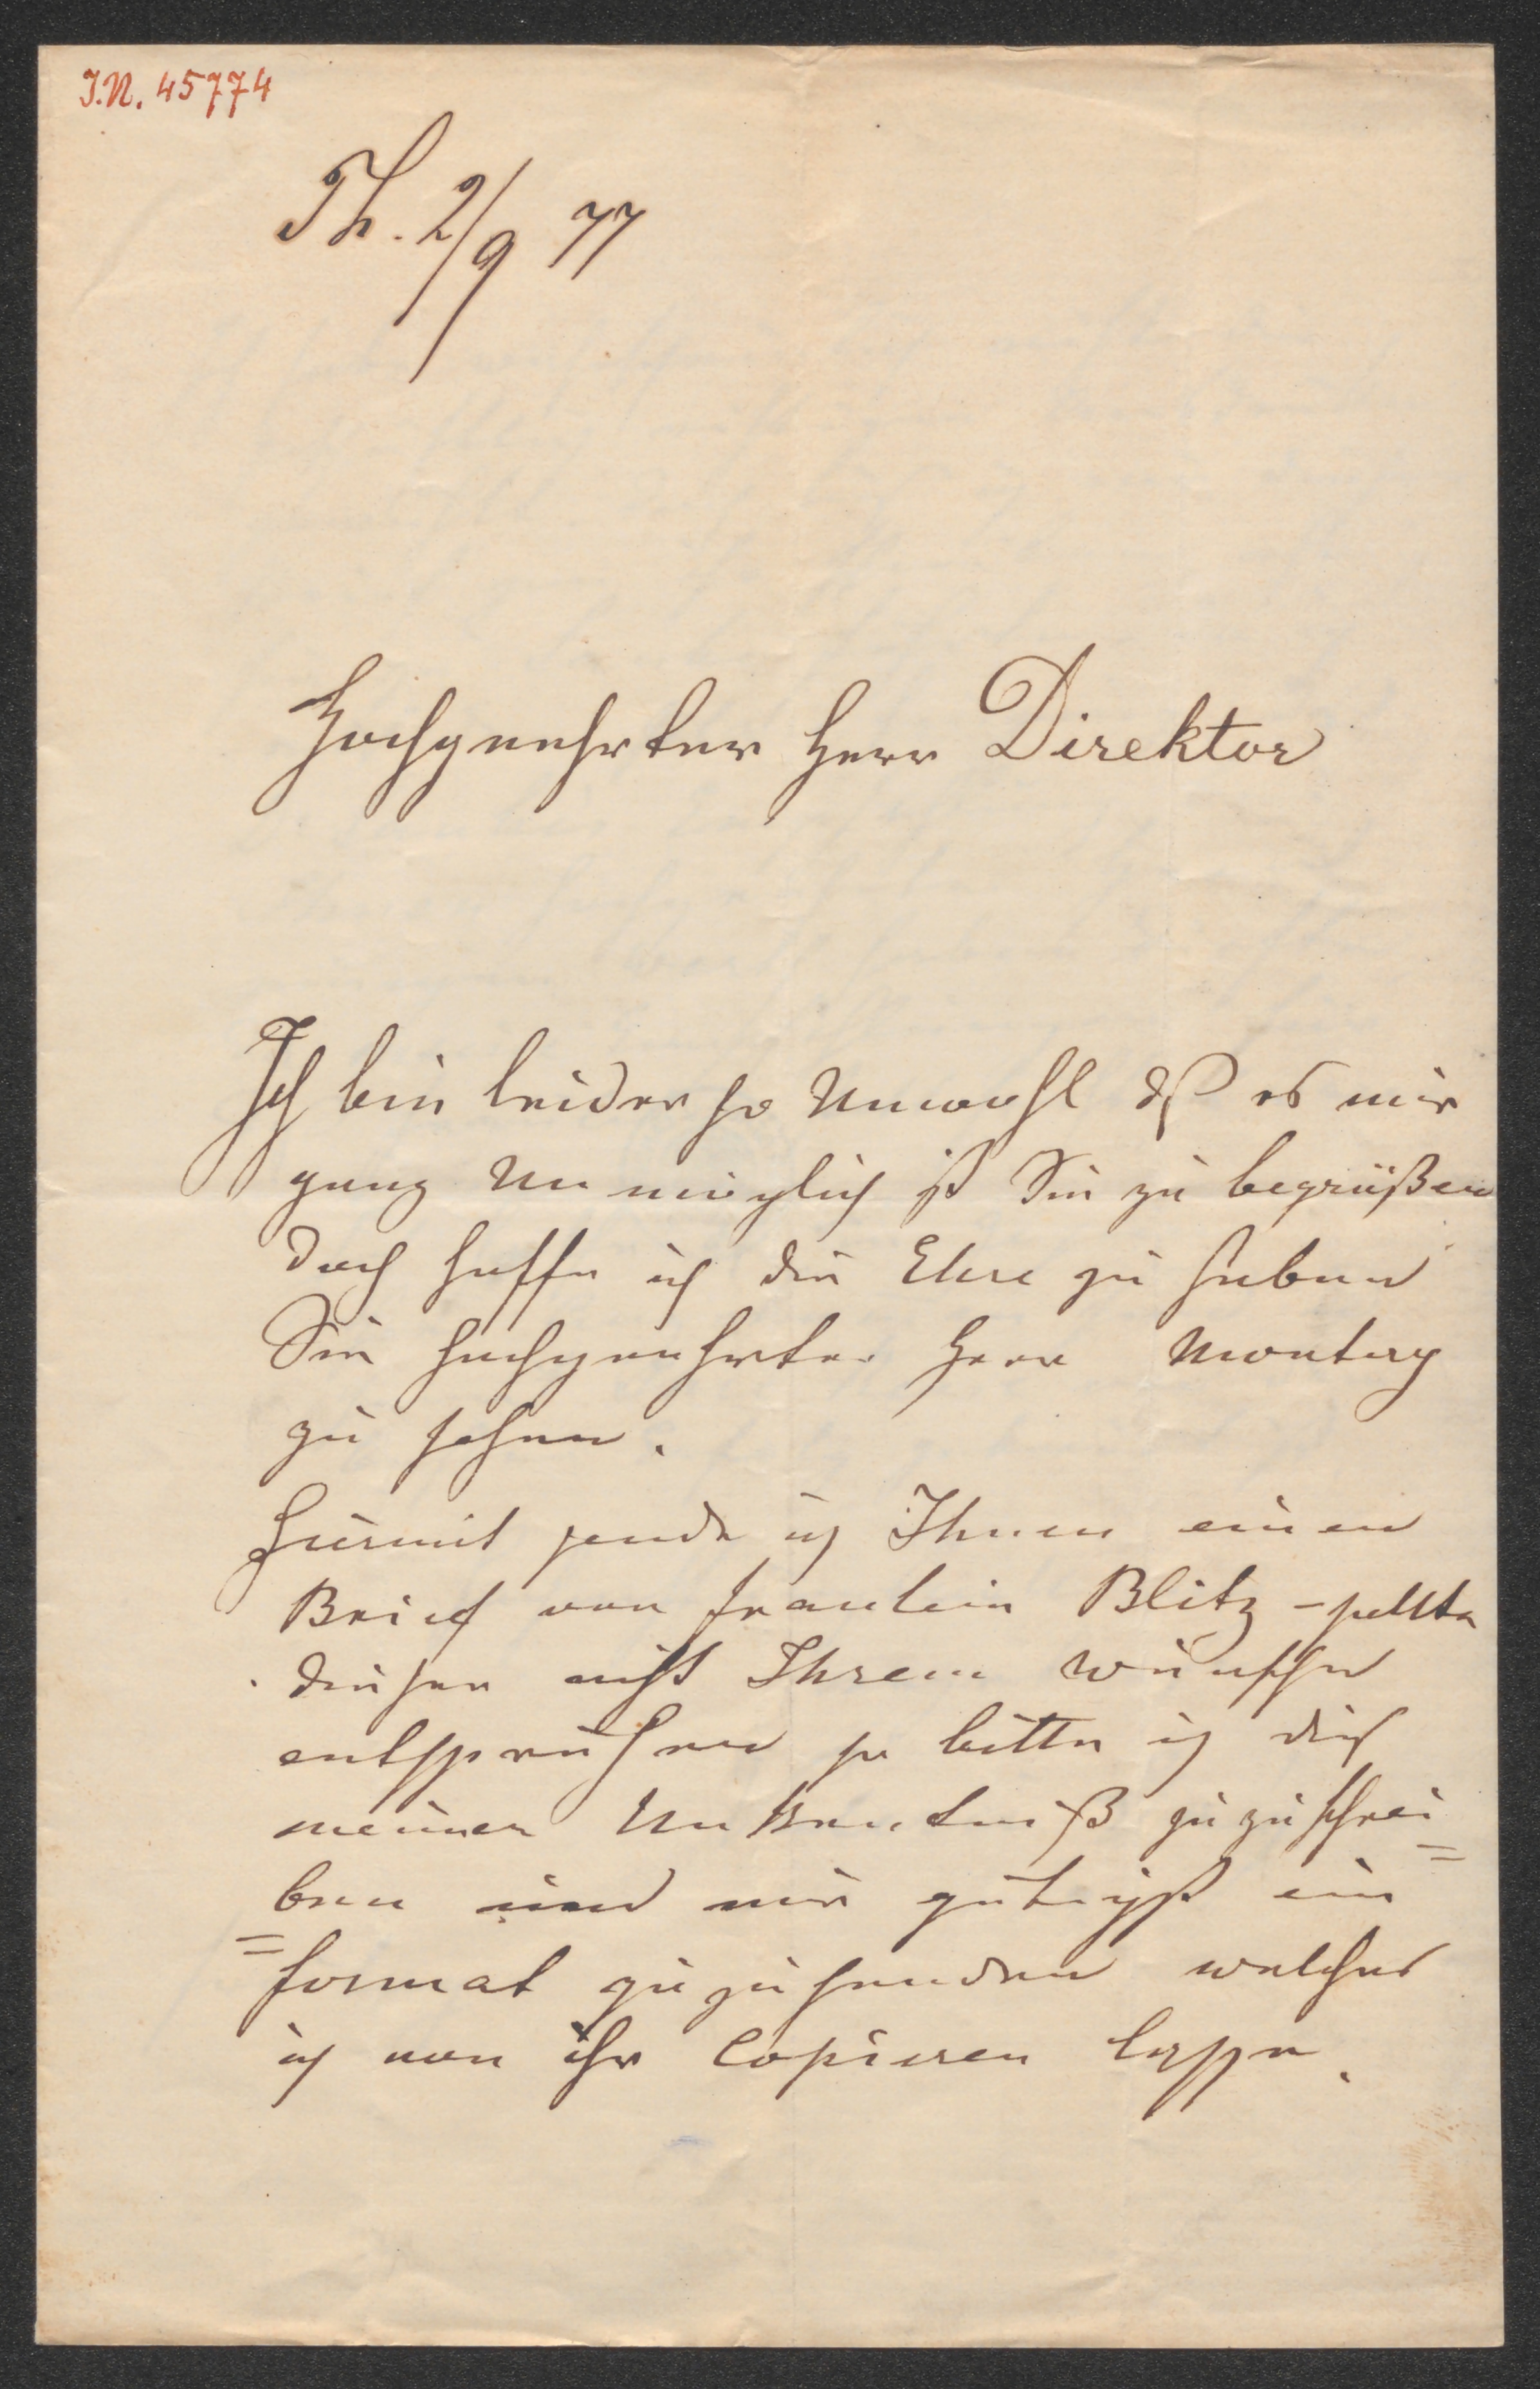 I.N. 45774
Th. 2/9 77
Hochgeehrter Herr Direktor
Ich bin leider so Unwohl dß es mir
ganz Unmöglich ist Sie zu begrüßen
doch hoffe ich die Ehre zu haben
Sie hochgeehrter Herr Montag
zu sehen.
Hiermit sende ich Ihnen einen
Brief von Fraulein Blitz - sollte
dieser nicht Ihrem wünsche
entsprechen so bitte ich dies
meiner Unkentniß zuzuschrei
=
ben und mir gütigst ein
=
format zuzusenden welches
ich von ihr Copieren lasse.